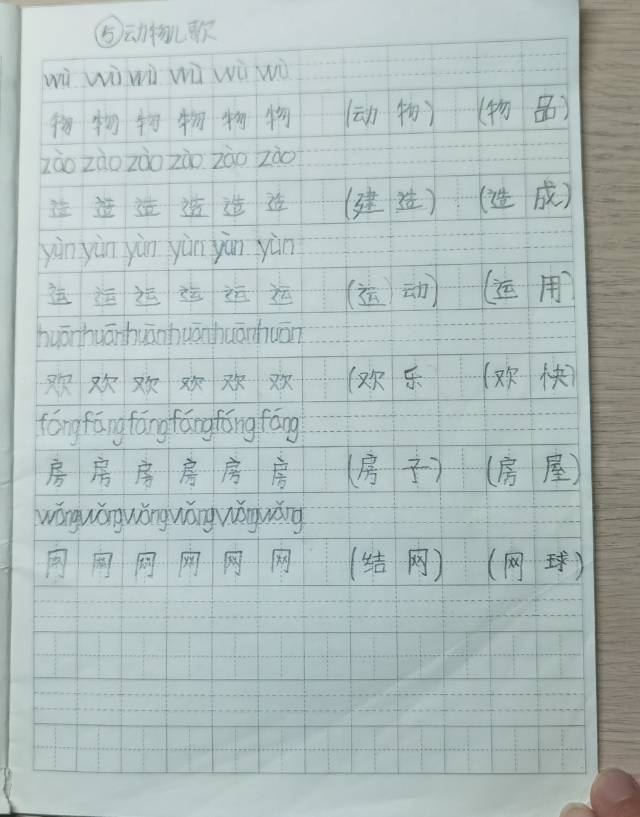 ⑤动物儿歌
wù wù wù wù wù wù
物 物 物 物 物 物 (动 物) (物 品)
zào zào zào zào zào zào
造 造 造 造 造 造 (建 造) (造 成)
yùn yùn yùn yùn yùn yùn
运 运 运 运 运 运 (运 动) (运 用)
huān huān huān huān huān huān
欢 欢 欢 欢 欢 欢 (欢 乐 (欢 快)
fáng fáng fáng fáng fáng fáng
房 房 房 房 房 房 (房 子) (房 屋)
wǎng wǎng wǎng wǎng wǎng wǎng
网 网 网 网 网 网 (结 网) (网 球)